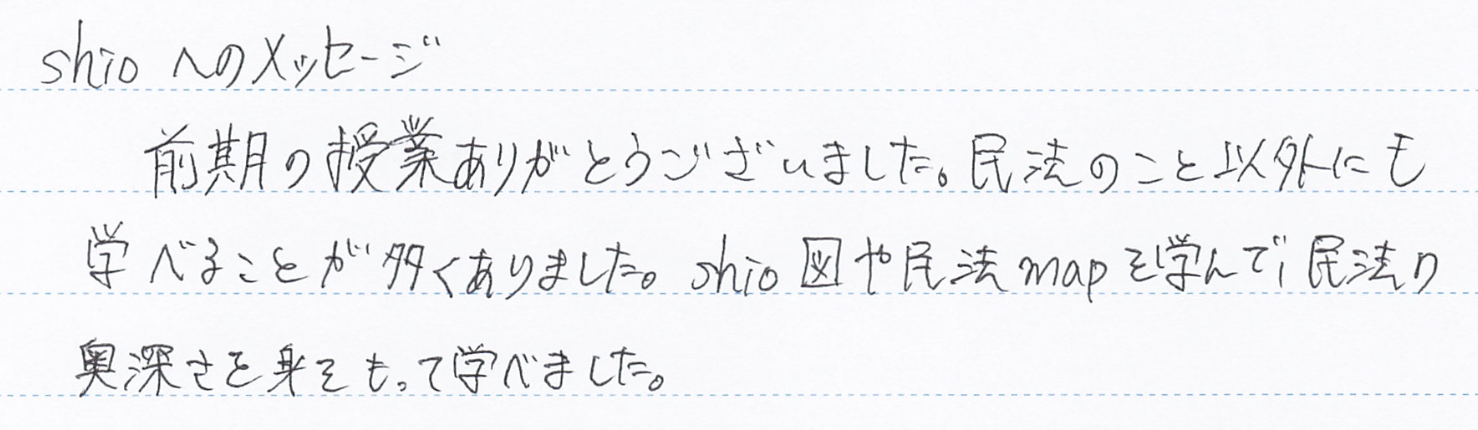 shioへのメッセージ
前期の授業ありがとうございました。民法のこと以外にも
学べることが多くありました。shio図や民法mapを学んで民法の
奥深さを身をもって学べました。